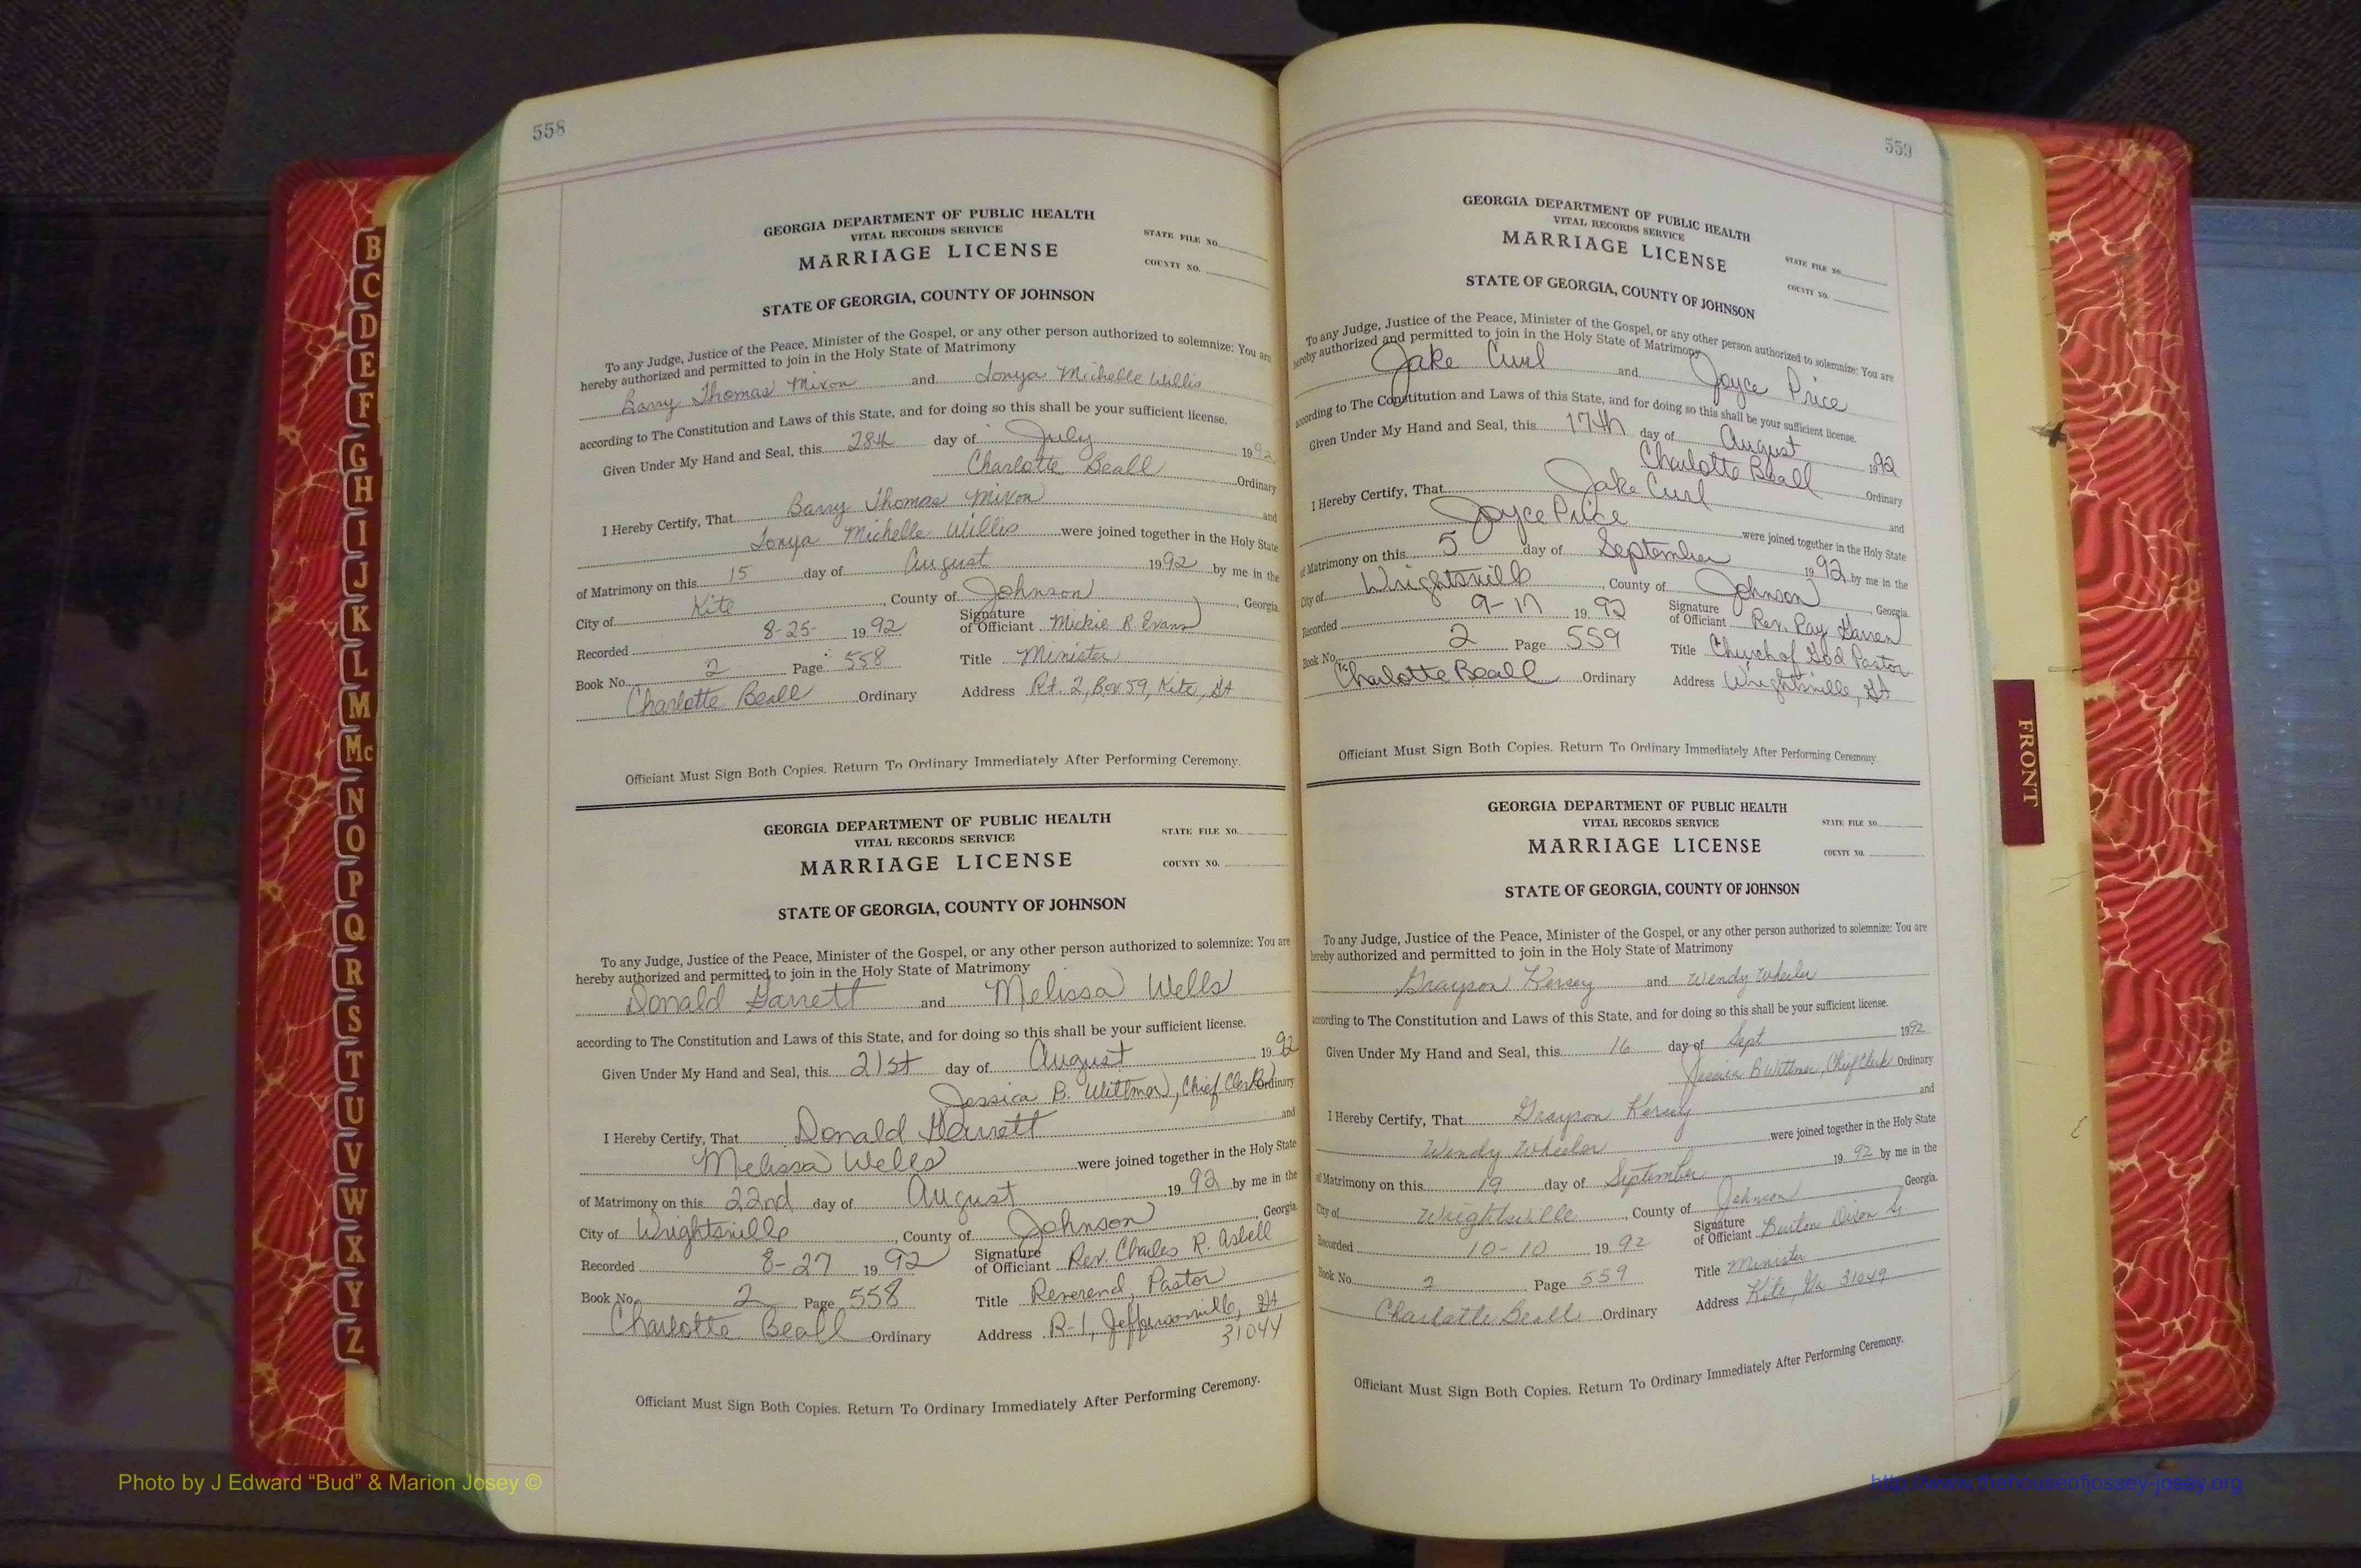 558
GEORGIA DEPARTMENT OF PUBLIC HEALTH
VITAL RECORDS SERVICE
MARRIAGE LICENSE
STATE FILE NO.
COUNTY NO.
STATE OF GEORGIA, COUNTY OF JOHNSON
To any Judge, Justice of the Peace, Minister of the Gospel, or any other person authorized to solemnize: You are
hereby authorized and permitted to join in the Holy State of Matrimony
Barry Thomas Mixon and Tonya Michelle Willis
according to The Constitution and Laws of this State, and for doing so this shall be your sufficient license.
Given Under My Hand and Seal, this 28th day of July 1992
Charlotte Beall Ordinary
I Hereby Certify, That Barry Thomas Mixon and
Tonya Michelle Willis were joined together in the Holy State
of Matrimony on this 15 day of August 1992 by me in the
City of Kite, County of Johnson, Georgia
Recorded 8-25- 19 92 Signature of Officiant Mickie R. Evans
Book No. 2 Page 558 Title Minister
Charlotte Beall Ordinary Address Rt. 2, Box 59, Kite, GA
Officiant Must Sign Both Copies. Return To Ordinary Immediately After Performing Ceremony.
GEORGIA DEPARTMENT OF PUBLIC HEALTH
VITAL RECORDS SERVICE
MARRIAGE LICENSE
STATE FILE NO.
COUNTY NO.
STATE OF GEORGIA, COUNTY OF JOHNSON
To any Judge, Justice of the Peace, Minister of the Gospel, or any other person authorized to solemnize: You are
hereby authorized and permitted to join in the Holy State of Matrimony
Donald Garrett and Melissa Wells
according to The Constitution and Laws of this State, and for doing so this shall be your sufficient license.
Given Under My Hand and Seal, this 21st day of August 19 92
Jessica B. Wittman, Chief Clerk Ordinary
I Hereby Certify, That Donald Garrett and
Melissa Wells were joined together in the Holy State
of Matrimony on this 22nd day of August 19 92 by me in the
City of Wrightsville, County of Johnson, Georgia
Recorded 8-27 19 92 Signature of Officiant Rev. Charles R. Asbell
Book No. 2 Page 558 Title Reverend, Pastor
Charlotte Beall Ordinary Address R-1, Jeffersonville, GA
31044
Officiant Must Sign Both Copies. Return To Ordinary Immediately After Performing Ceremony.
559
GEORGIA DEPARTMENT OF PUBLIC HEALTH
VITAL RECORDS SERVICE
MARRIAGE LICENSE
STATE FILE NO.
COUNTY NO.
STATE OF GEORGIA, COUNTY OF JOHNSON
To any Judge, Justice of the Peace, Minister of the Gospel, or any other person authorized to solemnize: You are
hereby authorized and permitted to join in the Holy State of Matrimony
Jake Curl and Joyce Price
according to The Constitution and Laws of this State, and for doing so this shall be your sufficient license.
Given Under My Hand and Seal, this 17th day of August 1992
Charlotte Beall Ordinary
I Hereby Certify, That Jake Curl and
Joyce Price were joined together in the Holy State
of Matrimony on this 5 day of September 19 92 by me in the
City of Wrightsville, County of Johnson, Georgia.
Recorded 9-17 19 92 Signature of Officiant Rev. Ray
Book No. 2 Page 559 Title Church of God Pastor
Charlotte Beall Ordinary Address Wrightsville, GA
Officiant Must Sign Both Copies. Return To Ordinary Immediately After Performing Ceremony.
GEORGIA DEPARTMENT OF PUBLIC HEALTH
VITAL RECORDS SERVICE
MARRIAGE LICENSE
STATE FILE NO.
COUNTY NO.
STATE OF GEORGIA, COUNTY OF JOHNSON
To any Judge, Justice of the Peace, Minister of the Gospel, or any other person authorized to solemnize: You are
hereby authorized and permitted to join in the Holy State of Matrimony
Grayson Kersey and Wendy Wheeler
according to The Constitution and Laws of this State, and for doing so this shall be your sufficient license.
Given Under My Hand and Seal, this 16 day of Sept 1992
Jessica B Wittman, Chief Clerk Ordinary
I Hereby Certify, That Grayson Kersey and
Wendy Wheeler were joined together in the Holy State
of Matrimony on this 19 day of September 19 92 by me in the
City of Wrightsville, County of Johnson Georgia.
Recorded 10-10 19 92 Signature of Officiant Dixon
Book No. 2 Page 559 Title Minister
Charlotte Beall Ordinary Address Kite, Ga 31049
Officiant Must Sign Both Copies. Return To Ordinary Immediately After Performing Ceremony.
B
C
D
E
F
G
H
I
J
K
L
M
Mc
N
O
P
Q
R
S
T
U
V
W
X
Y
Z
FRONT
Photo by J Edward “Bud” & Marion Josey ©
http://www.thehouseofjossey-josey.org